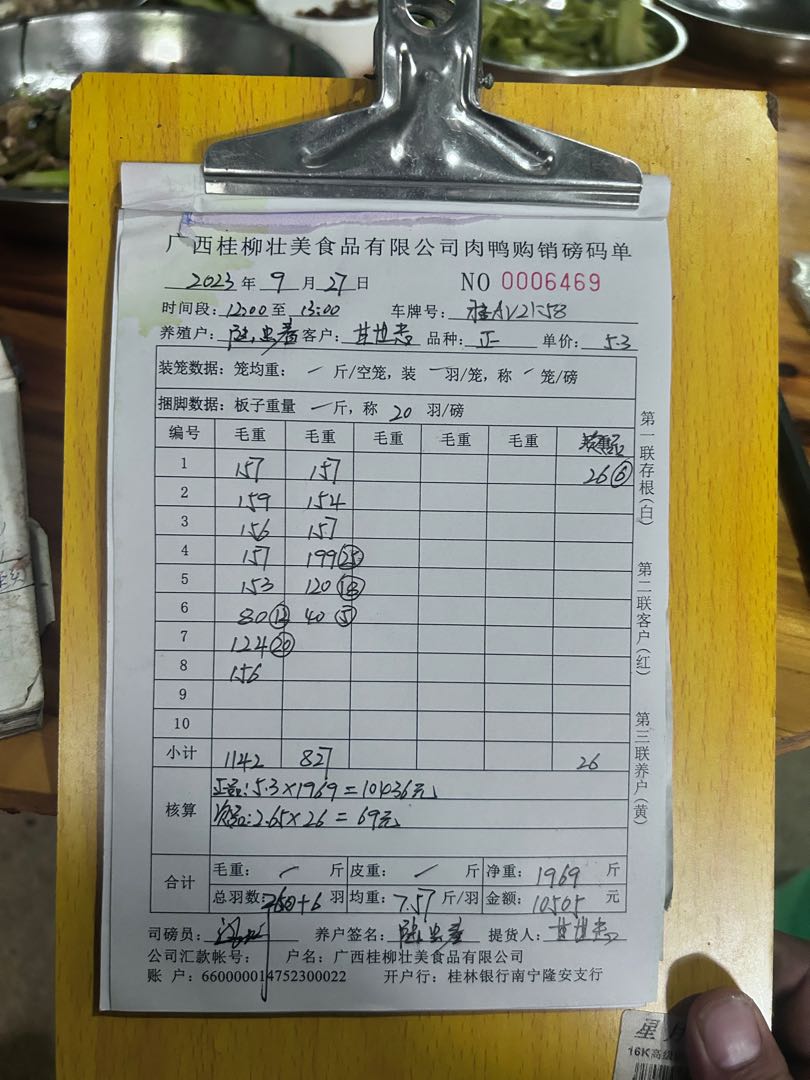 广西桂柳壮美食品有限公司肉鸭购销磅码单
2023年 9月 27日 NO 0006469
时间段: 12:00 至 13:00 车牌号:
养殖户: 客户: 甘世志 品种: 正 单价: 5.3
装笼数据: 笼均重: — 斤/空笼, 装 — 羽/笼, 称 — 笼/磅
捆脚数据: 板子重量 — 斤, 称 20 羽/磅
编号 毛重 毛重 毛重 毛重 毛重
1 157 157 26 ⑥
2 159 154
3 156 157
4 157 199 ㉕
5 153 120 ⑱
6 80 ⑫ 40 ⑤
7 124 ⑳
8 156
9
10
小计 1142 827 26
核算
正品: 5.3×1969=10436元
次品: 2.65×26=69元
合计
毛重: — 斤 皮重: — 斤 净重: 1969 斤
总羽数: 260+6 羽 均重: 7.57 斤/羽 金额: 10505 元
司磅员: 养户签名: 提货人: 甘世志
公司汇款帐号: 户名: 广西桂柳壮美食品有限公司
账 户: 660000014752300022 开户行: 桂林银行南宁隆安支行
第一联存根(白)
第二联客户(红)
第三联养户(黄)
16K高级